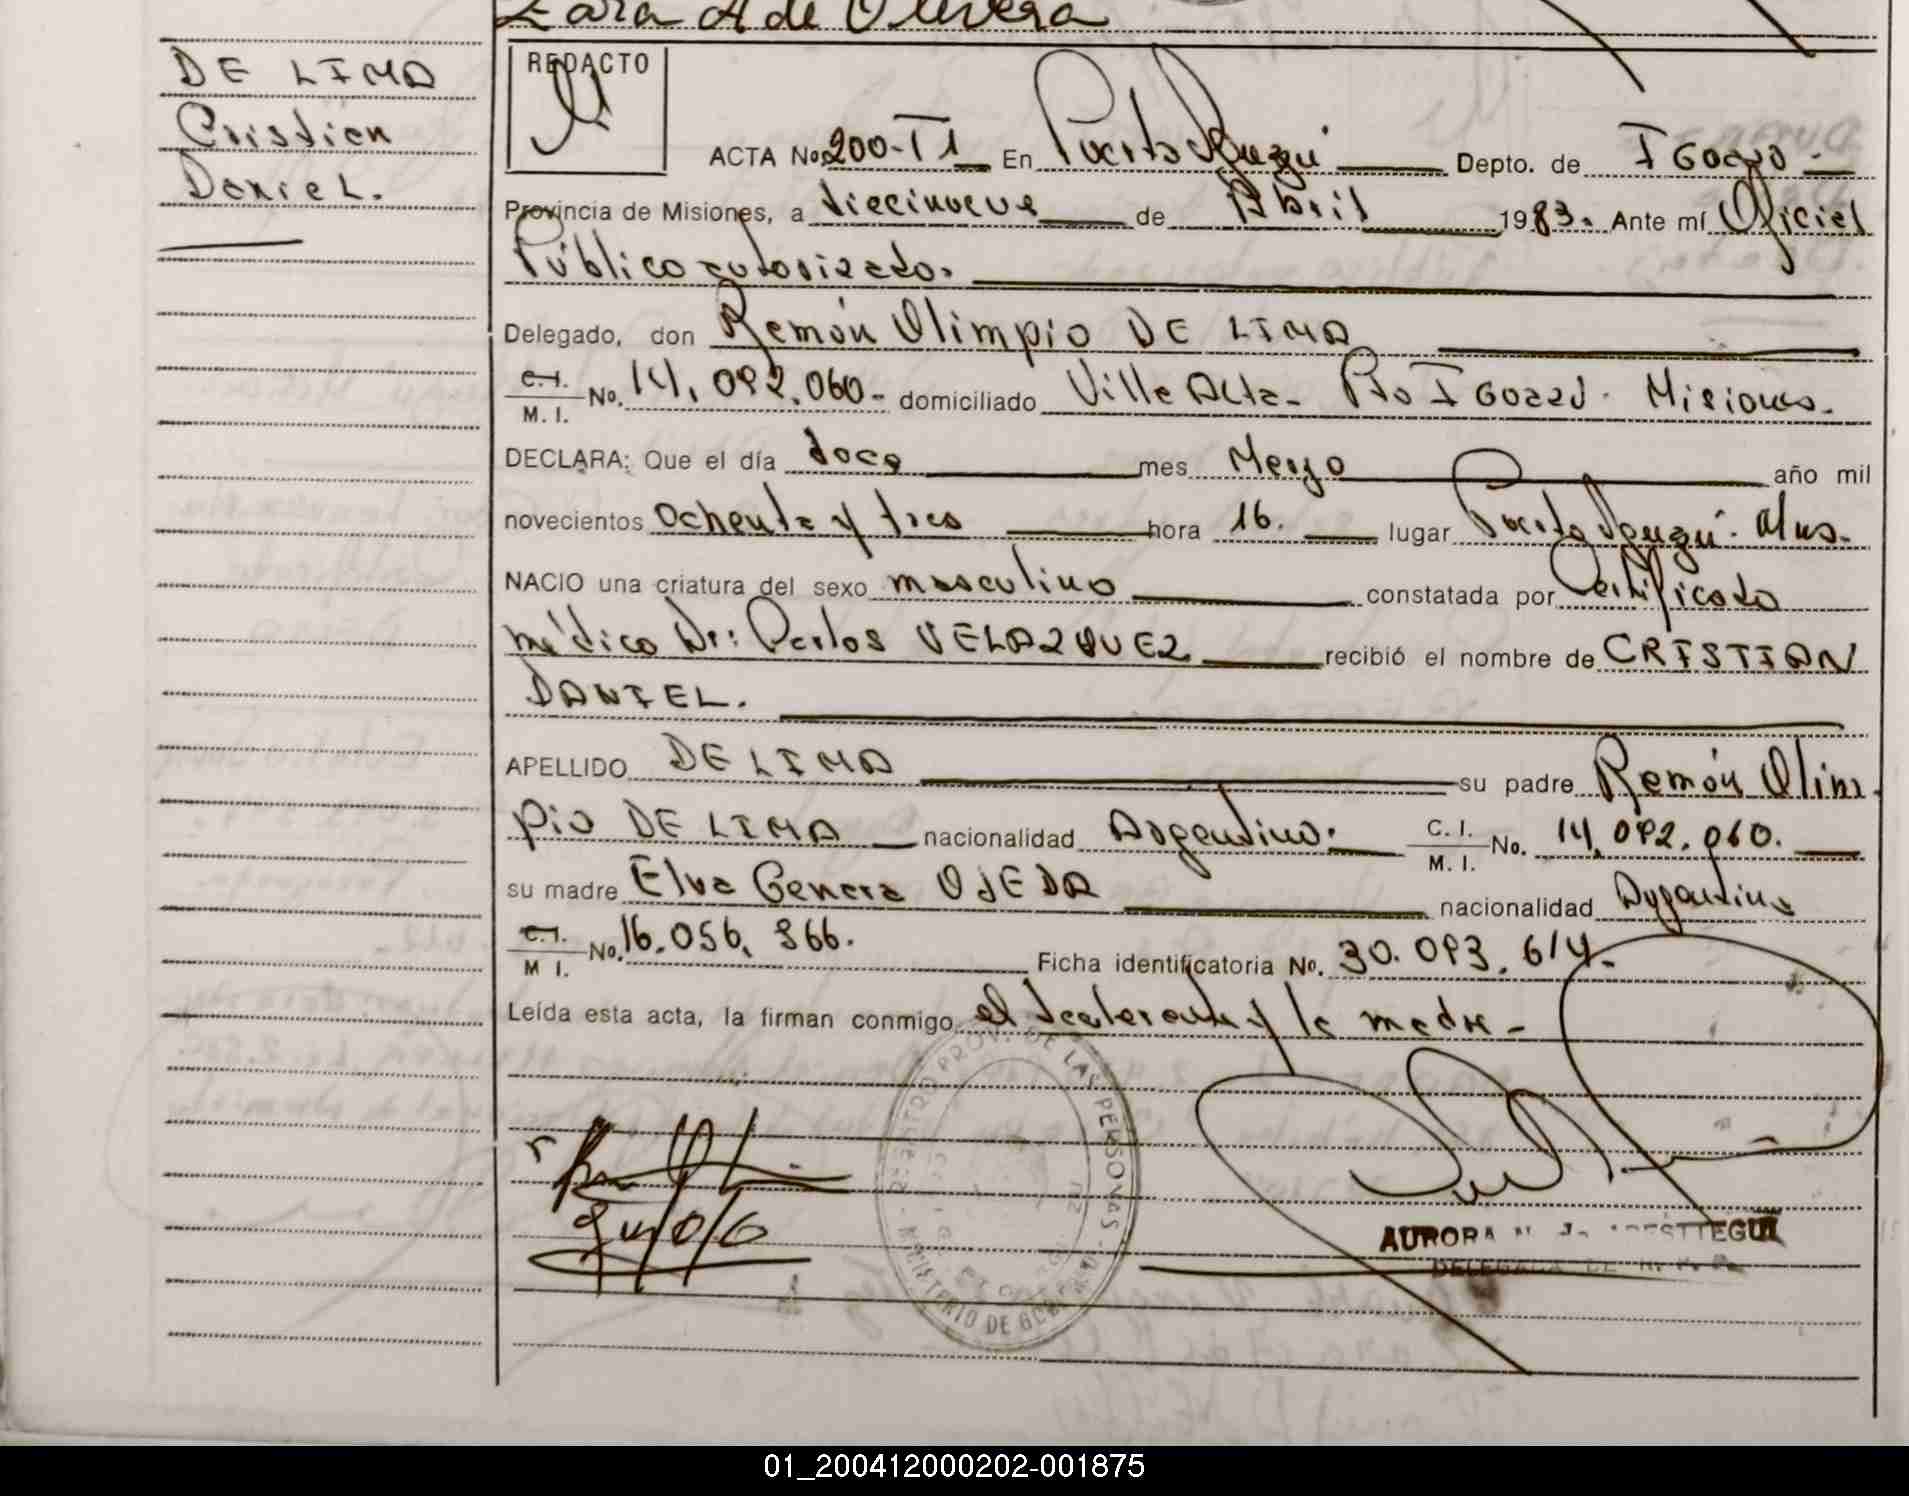 Zara A de Olivera
DE LIMA
Cristian
Daniel.
REDACTO
ACTA No. 200-T1 En Puerto Iguazú Depto. de IGUAZU
Provincia de Misiones, a diecinueve de Abril 1983. Ante mí Oficial
Público autorizado.
Delegado, don Ramón Olimpio DE LIMA
C.I. M. I. No. 14.092.060- domiciliado Villa Alta- Pto IGUAZU. Misiones.
DECLARA: Que el día doce mes Marzo año mil
novecientos ochenta y tres hora 16. lugar Puerto Iguazú. Mnes.
NACIO una criatura del sexo masculino constatada por Certificado
médico Dr: Carlos VELAZQUEZ recibió el nombre de CRISTIAN
DANIEL.
APELLIDO DE LIMA su padre Ramón Olim
pio DE LIMA nacionalidad Argentino. C. I. M. I. No. 14.092.060.
su madre Elva Genara OJEDA nacionalidad Argentina
C.I. M I. No. 16.056.366. Ficha identificatoria No. 30.093.614.
Leída esta acta, la firman conmigo el declarante y la madre-
REGISTRO PROV. DE LAS PERSONAS
MINISTERIO DE GOBIERNO
AURORA
DELEGADA DE R. P. P.
01_200412000202-001875